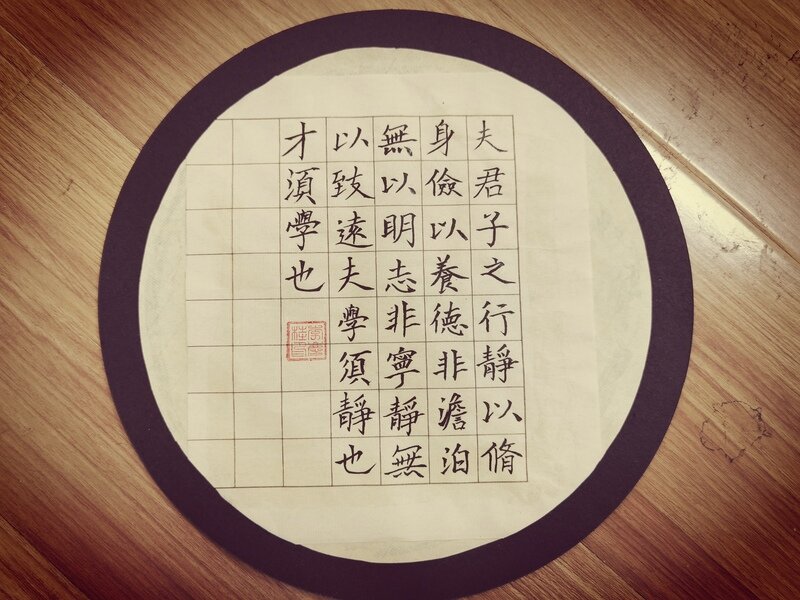 夫君子之行靜以脩
身儉以養德非澹泊
無以明志非寧靜無
以致遠夫學須靜也
才須學也